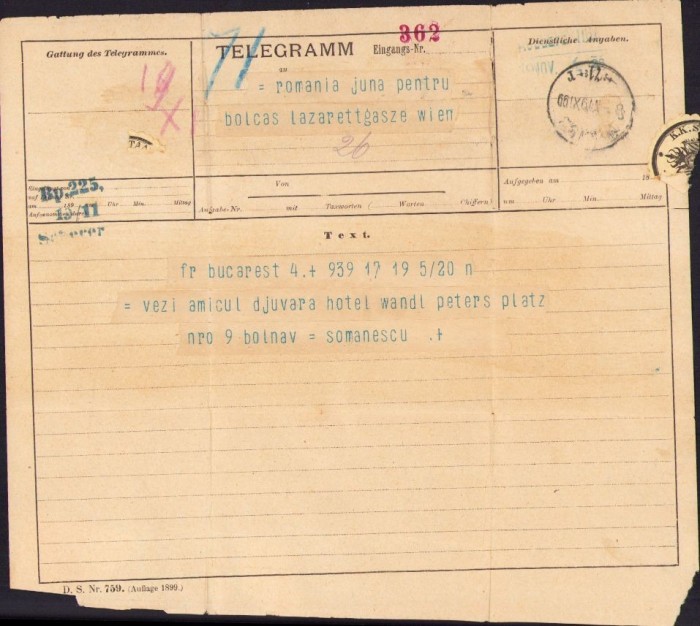 362
Gattung des Telegrammes.
71
TELEGRAMM
Eingangs-Nr.
Dienstliche Angaben.
an
= romania juna pentru
bolcas lazarettgasze wien
26
19
XI
TAX
K.K.
Bp. 225,
13/11
Uhr Min. Mittag
Von
Aufgabe-Nr. mit Taxworten ( Worten Chiffern)
Aufgegeben am 18
um Uhr Min. Mittag
Text.
fr bucarest 4.+ 939 17 19 5/20 n
= vezi amicul djuvara hotel wandl peters platz
nro 9 bolnav = somanescu .+
D. S. Nr. 759. (Auflage 1899.)